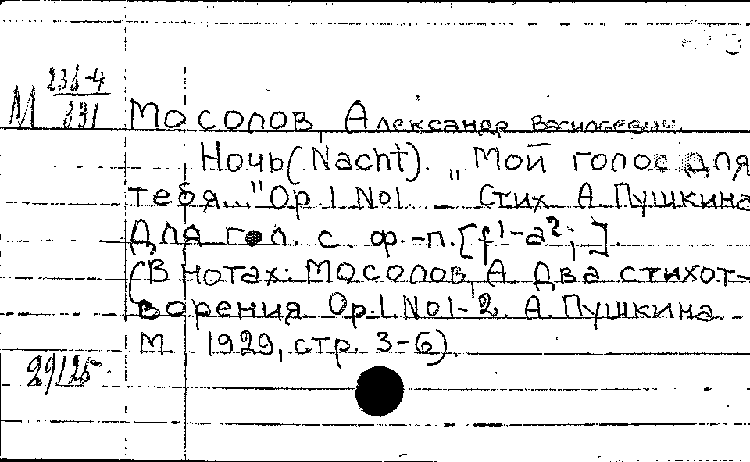 М 236-4
891
Мосолов, Александр Васильевич.
Ночь (Nacht). „Мой голос для
тебя..." Op. 1 No1. – Стих. А. Пушкина
Для гол. с ф.-п. [f¹-a²; ].
(В нотах: Мосолов, А. Два стихот-
ворения. Op. 1. No1-2. А. Пушкина.
М. 1929, стр. 3-6).
29125